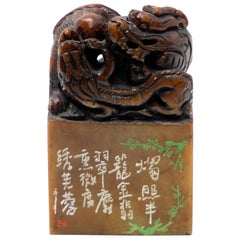 照半
籠金翡
翠麝
熏微度
綉芙蓉